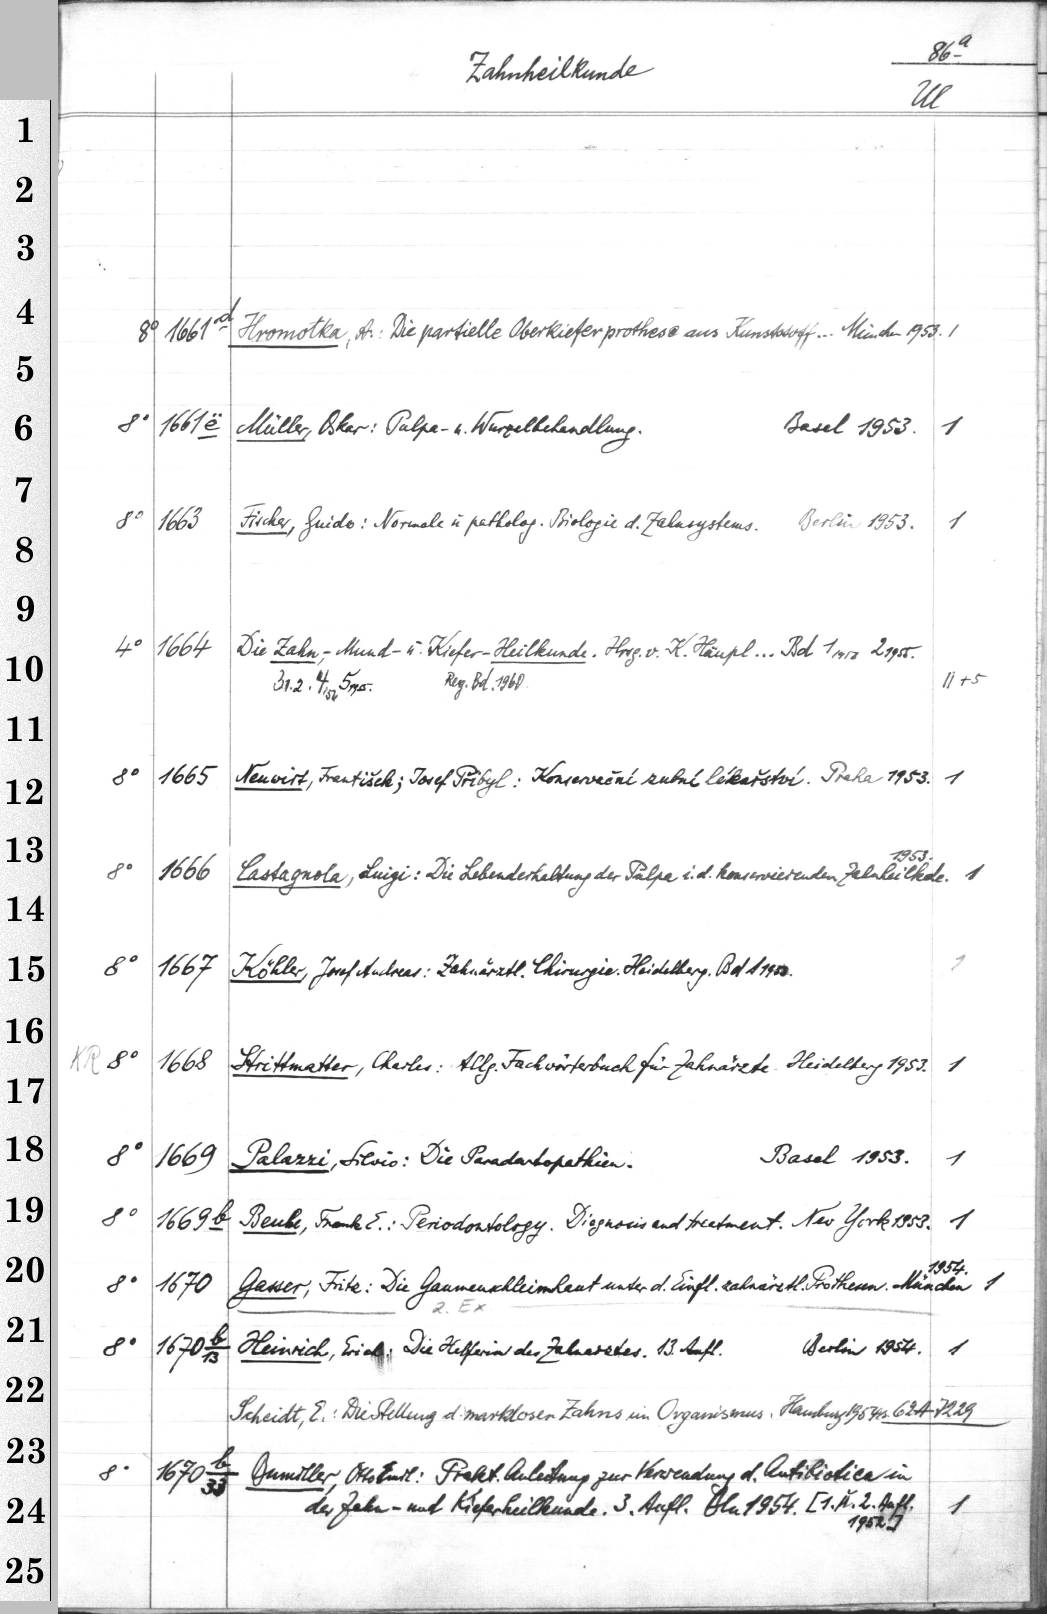 86a
Zahnheilkunde
Ul
1
2
3
4
8° 1661 d Hromotka, A.: Die partielle Oberkieferprothese aus Kunststoff... München 1953. 1
5
6 8° 1661 ë Müller, Oskar: Pulpa- u. Wurzelbehandlung. Basel 1953. 1
7
8° 1663 Fischer, Guido: Normale u patholog. Biologie d. Zahnsystems. Berlin 1953. 1
8
9
4° 1664 Die Zahn-, Mund- u. Kiefer-Heilkunde. Hrsg. v. K. Häupl... Bd 1 2 1955.
10 31.2. 4 5 1955. Reg. Bd. 1960 II + 5
11
12 8° 1665 Neuwirt, František; Josef Přibyl: Konservační zubní lékařství. Praha 1953. 1
13 1953.
8° 1666 Castagnola, Luigi: Die Lebenderhaltung der Pulpa i. d. konservierenden Zahnheilkde. 1
14
15 8° 1667 Köhler, Josef Andreas: Zahnärztl. Chirurgie. Heidelberg. Bd 1 1
16
KR 8° 1668 Strittmatter, Charles: Allg. Fachwörterbuch für Zahnärzte Heidelberg 1953. 1
17
18 8° 1669 Palazzi, Silvio: Die Paradentopathien. Basel 1953. 1
19 8° 1669 b Beube, Frank E.: Periodontology. Diagnosis and treatment. New York 1953. 1
20 1954.
8° 1670 Gasser, Fritz: Die Gaumenschleimhaut unter d. Einfl. zahnärztl. Prothesen. München 1
2. Ex
21 8° 1670 b/13 Heinrich, Erich: Die Helferin des Zahnarztes. 13. Aufl. Berlin 1954. 1
22 Scheidt, E.: Die Stellung d. marklosen Zahns im Organismus. Hamburg 1954 62 A 7229
23 8° 1670 b/33 Otto Emil: Prakt. Anleitung zur Verwendung d. Antibiotica in
24 der Zahn- und Kieferheilkunde. 3. Aufl. Bln 1954. [1. u. 2. Aufl. 1
1952.]
25